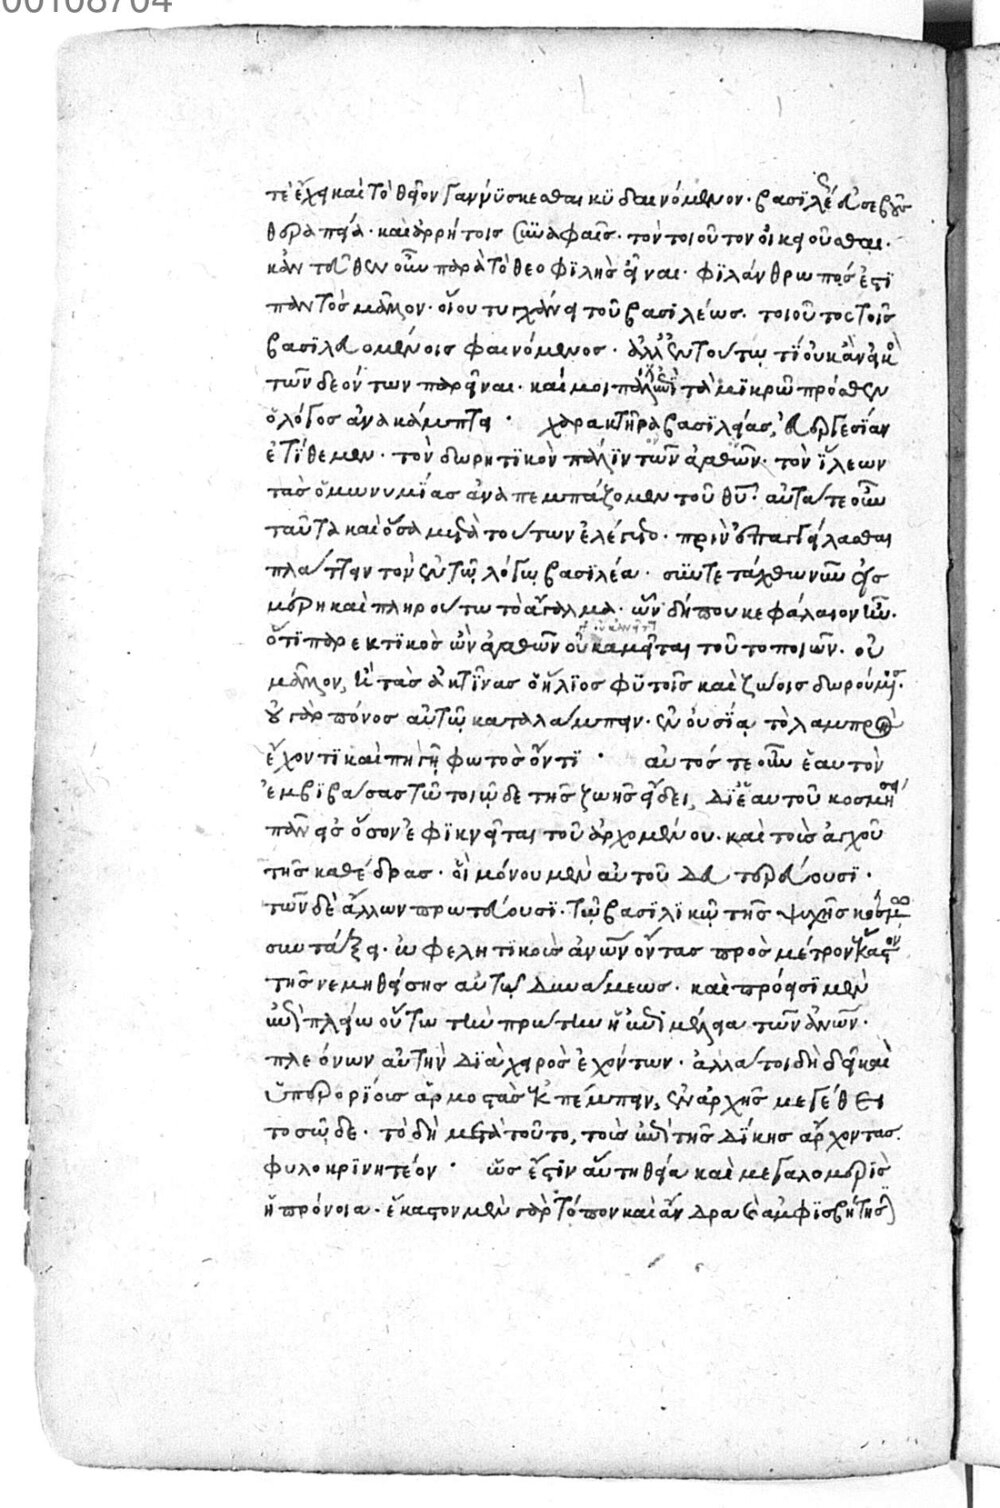 τε ἔχει καὶ τὸ θεῖον γαννύσκεσθαι κυδαινόμενον· βασιλέως εὐσεβοῦς
θεραπεία· καὶ ἀρρήτοις συναφαῖς· τὸν τοιοῦτον οἰκειοῦσθαι·
κἀντεῦθεν οὖν παρὰ τὸ θεοφιλὴς εἶναι· φιλάνθρωπός ἐστι
παντὸς μᾶλλον· οἵου τυγχάνει τοῦ βασιλέως· τοιοῦτος τοῖς
βασιλευομένοις φαινόμενος· ἀλλ' ἐν τούτω τί οὐκ ἂν εἰκὸς
τῶν δεόντων παρεῖναι· καί μοι πάλιν ἐπὶ τὰ μικρῶ πρόσθεν
ὁ λόγος ἀνακάμπτει· χαρακτῆρα βασιλείας, εὐεργεσίαν
ἐτίθεμεν· τὸν δωρητικὸν πάλιν τῶν ἀγαθῶν· τὸν ἵλεων
τὰς ὁμωνυμίας ἀναπεμπάζομεν τοῦ θυ· αὐτά τε οὖν
ταῦτα καὶ ὅσα μετὰ τούτων ἐλέγετο· πρὶν ὑπαγγείλασθαι
πλάττειν τὸν ἐν τῶ λόγω βασιλέα· συντετάχθω νῦν εἰς
μέρη καὶ πληρούτω τὸ ἄγαλμα· ὧν δήπου κεφάλαιον ἦν·
ὅτι παρεκτικὸς ὢν ἀγαθῶν οὐ καμεῖται τοῦτο ποιῶν· οὐ
μᾶλλον, ἢ τὰς ἀκτῖνας ὁ ἥλιος φυτοῖς καὶ ζώοις δωρούμενος·
οὐ γὰρ πόνος αὐτῶ καταλάμπειν· ἐν οὐσία τὸ λαμπρὸν
ἔχοντι καὶ πηγῆ φωτὸς ὄντι· αὐτός τε οὖν ἑαυτὸν
ἐμβιβάσας τῶ τοιῶδε τῆς ζωῆς εἴδει, δι' ἑαυτοῦ κοσμήσει
πᾶν εἰς ὅσον ἐφικνεῖται τοῦ ἀρχομένου· καὶ τοὺς ἀγχοῦ
τῆς καθέδρας· οἳ μόνου μὲν αὐτοῦ δευτερεύουσι·
τῶν δὲ ἄλλων πρωτεύουσι· τῶ βασιλικῶ τῆς ψυχῆς κόσμω
συντάξει· ὠφελητικοὺς ἀνων ὄντας πρὸς μέτρον ἕκαστον
τῆς νεμηθείσης αὐτῶ δυνάμεως· καὶ πρόεισι μὲν
ἐπὶ πλείω οὕτω τὴν πρώτην ἡ ἐπιμέλεια τῶν ἀνων·
πλεόνων αὐτὴν διὰ χειρὸς ἐχόντων· ἀλλά τοι δὴ δεῖ καὶ
ὑπερορίους ἁρμοστὰς ἐκπέμπειν, ἐν ἀρχῆς μεγέθει
τοσῶδε· τὸ δὴ μετὰ τοῦτο, τοὺς ἐπὶ τῆς δίκης ἄρχοντας
φυλοκρινητέον· ὡς ἔστιν αὕτη θεία καὶ μεγαλομερὴς
ἡ πρόνοια· ἕκαστον μὲν γὰρ τόπον καὶ ἄνδρα καὶ ἀμφισβήτησιν